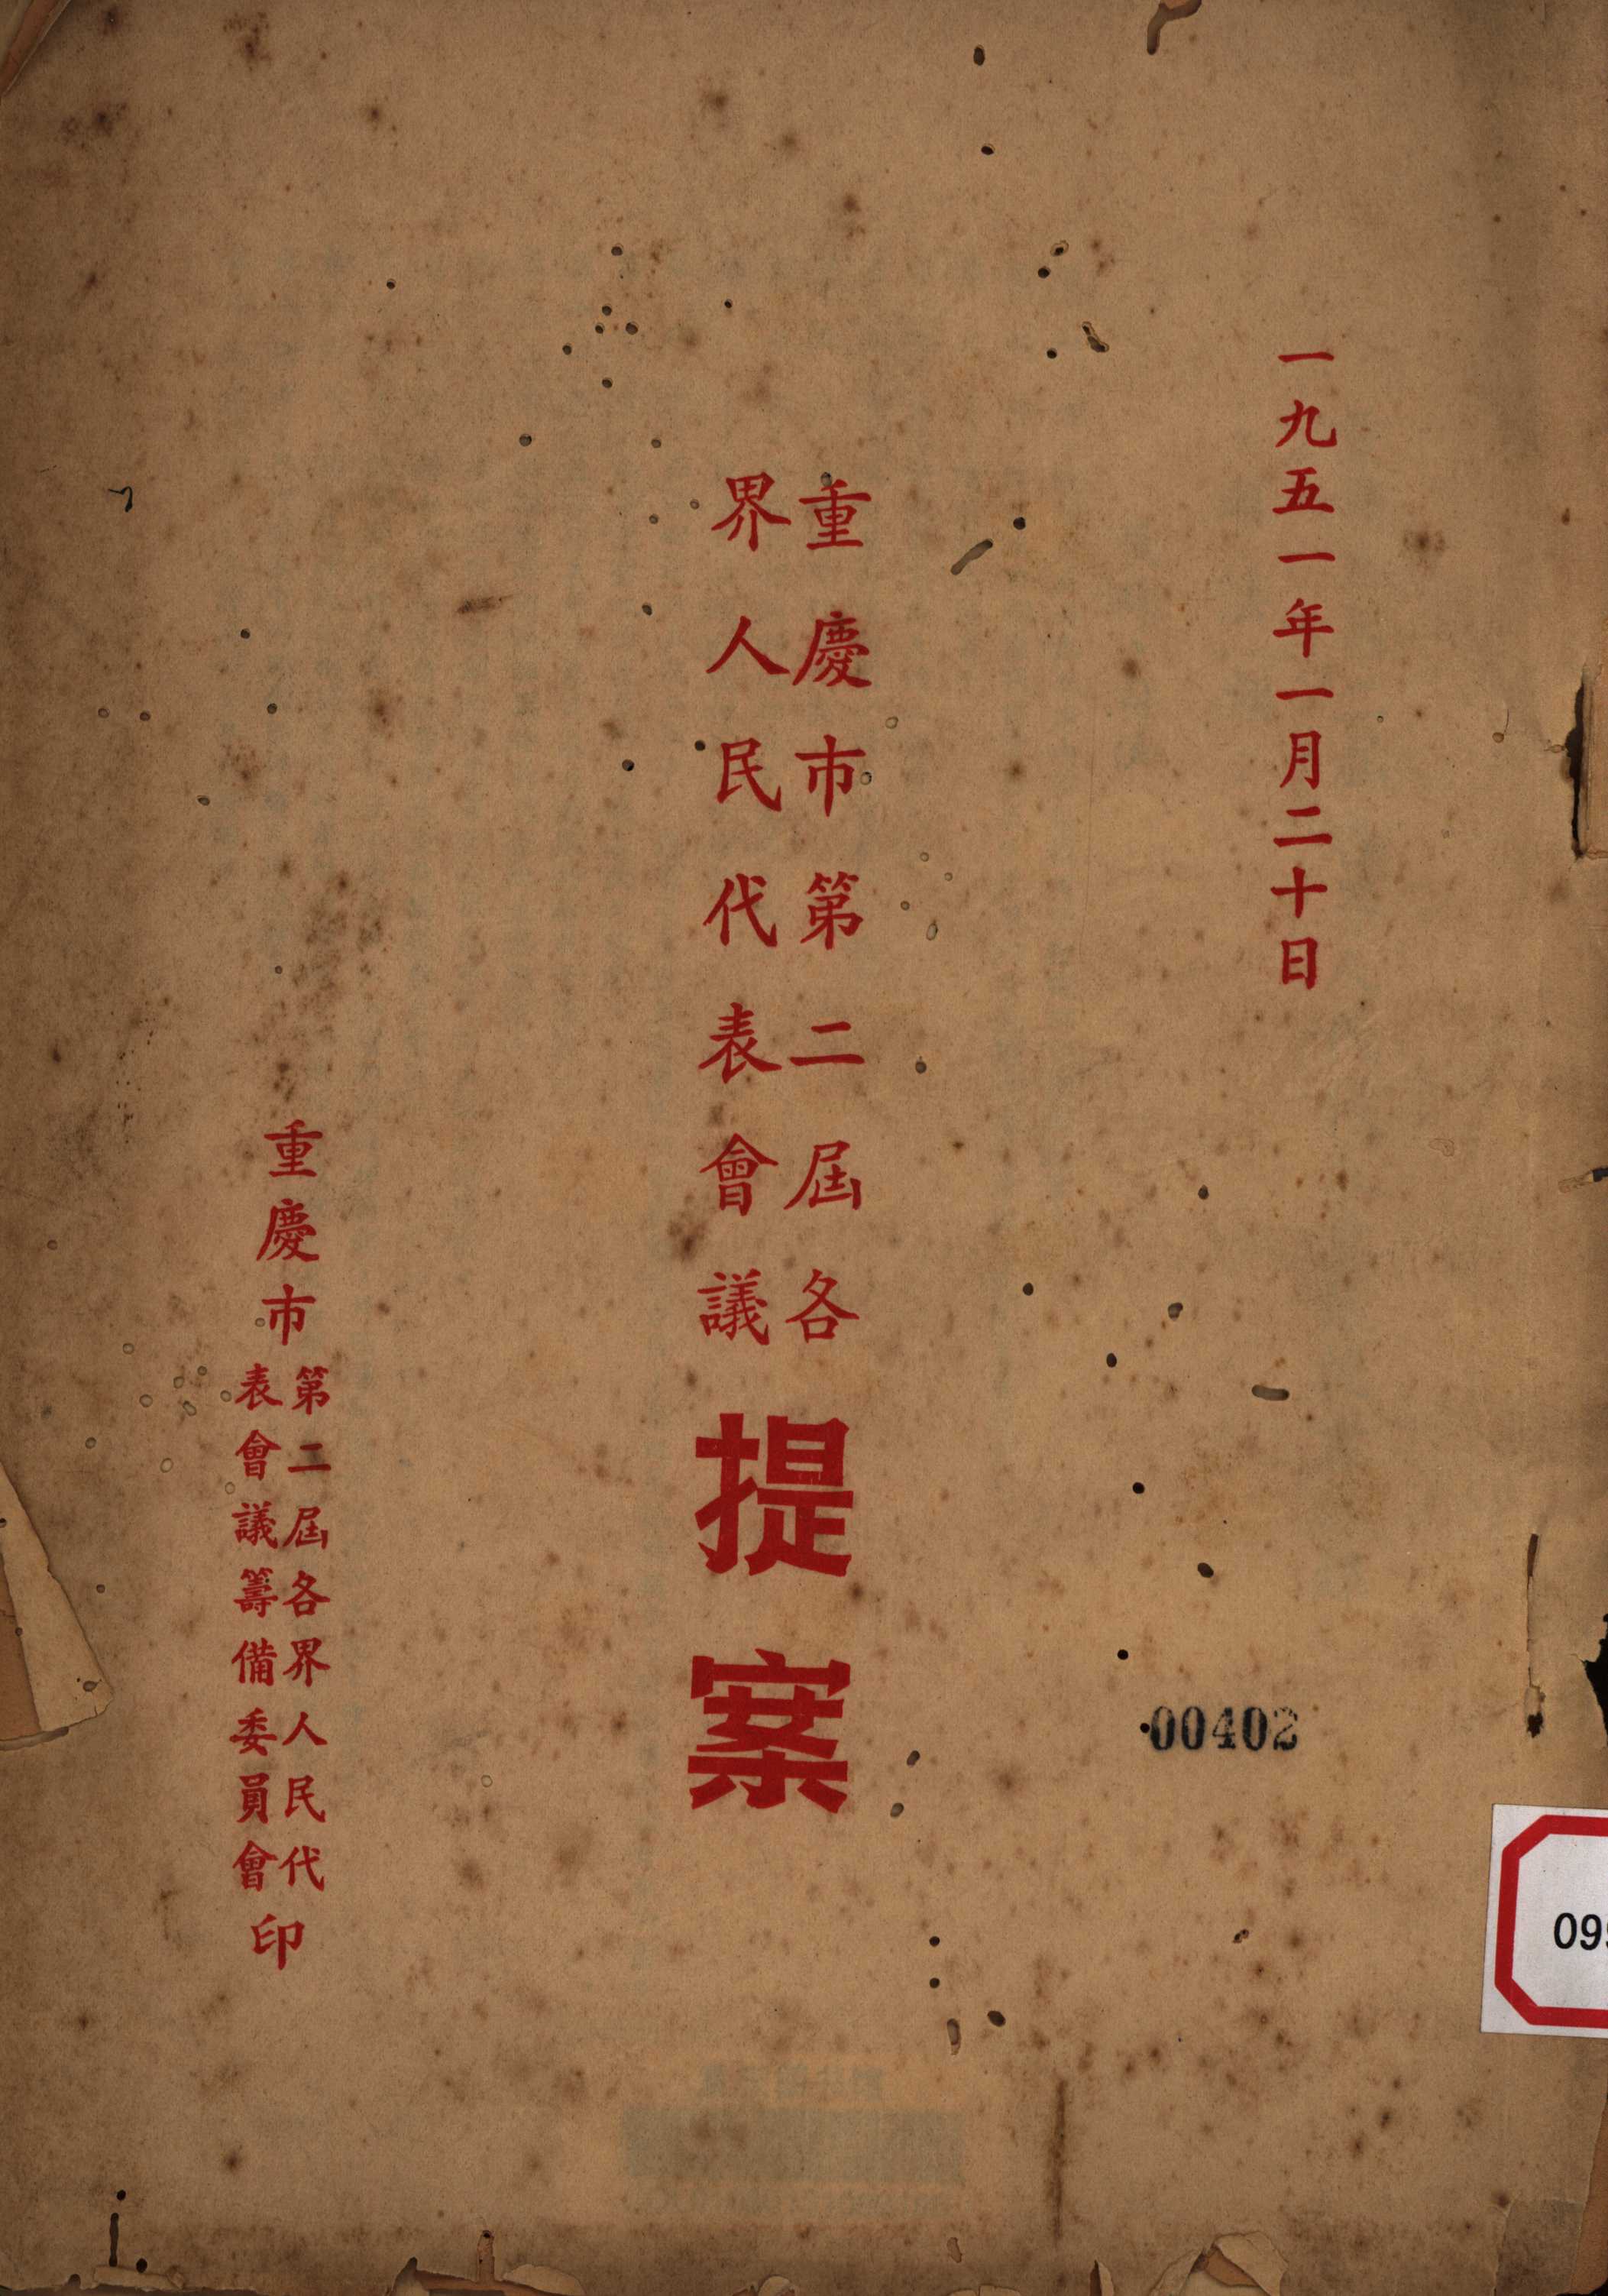 一九五一年一月二十日
重慶市第二屆各
界人民代表會議
提案
重慶市
第二屆各界人民代
表會議籌備委員會
印
00402